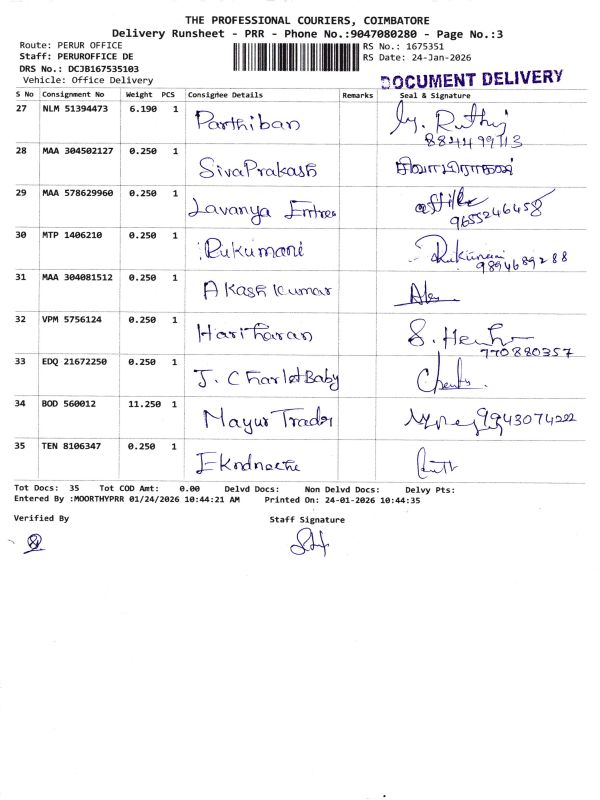 THE PROFESSIONAL COURIERS, COIMBATORE
Delivery Runsheet - PRR - Phone No.:9047080280 - Page No.:3
Route: PERUR OFFICE RS No.: 1675351
Staff: PERUROFFICE DE RS Date: 24-Jan-2026
DRS No.: DCJB167535103
Vehicle: Office Delivery
DOCUMENT DELIVERY
S No Consignment No Weight PCS Consignee Details Remarks Seal & Signature
27 NLM 51394473 6.190 1 Parthiban
28 MAA 304502127 0.250 1 SivaPrakash சிவாபிரகாஷ்
29 MAA 578629960 0.250 1 Lavanya 9655246458
30 MTP 1406210 0.250 1 Rukumani Rukumani 9894689288
31 MAA 304081512 0.250 1 Akash Kumar
32 VPM 5756124 0.250 1 Hariharan 770880357
33 EDQ 21672250 0.250 1 J. Charlet Baby
34 BOD 560012 11.250 1 Mayur Trader
35 TEN 8106347 0.250 1
Tot Docs: 35 Tot COD Amt: 0.00 Delvd Docs: Non Delvd Docs: Delvy Pts:
Entered By :MOORTHYPRR 01/24/2026 10:44:21 AM Printed On: 24-01-2026 10:44:35
Verified By Staff Signature